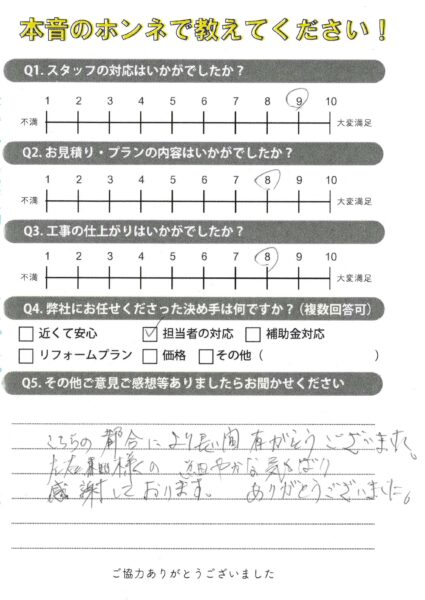 本音のホンネで教えてください！
Q1. スタッフの対応はいかがでしたか？
1 2 3 4 5 6 7 8 9 10
不満 大変満足
Q2. お見積り・プランの内容はいかがでしたか？
1 2 3 4 5 6 7 8 9 10
不満 大変満足
Q3. 工事の仕上がりはいかがでしたか？
1 2 3 4 5 6 7 8 9 10
不満 大変満足
Q4. 弊社にお任せくださった決め手は何ですか？（複数回答可）
近くて安心 担当者の対応 補助金対応
リフォームプラン 価格 その他（ ）
Q5. その他ご意見ご感想等ありましたらお聞かせください
こちらの都合により長い間有がとうございます。
様の やかな気くばり
感謝しております。 ありがとうございました。
ご協力ありがとうございました